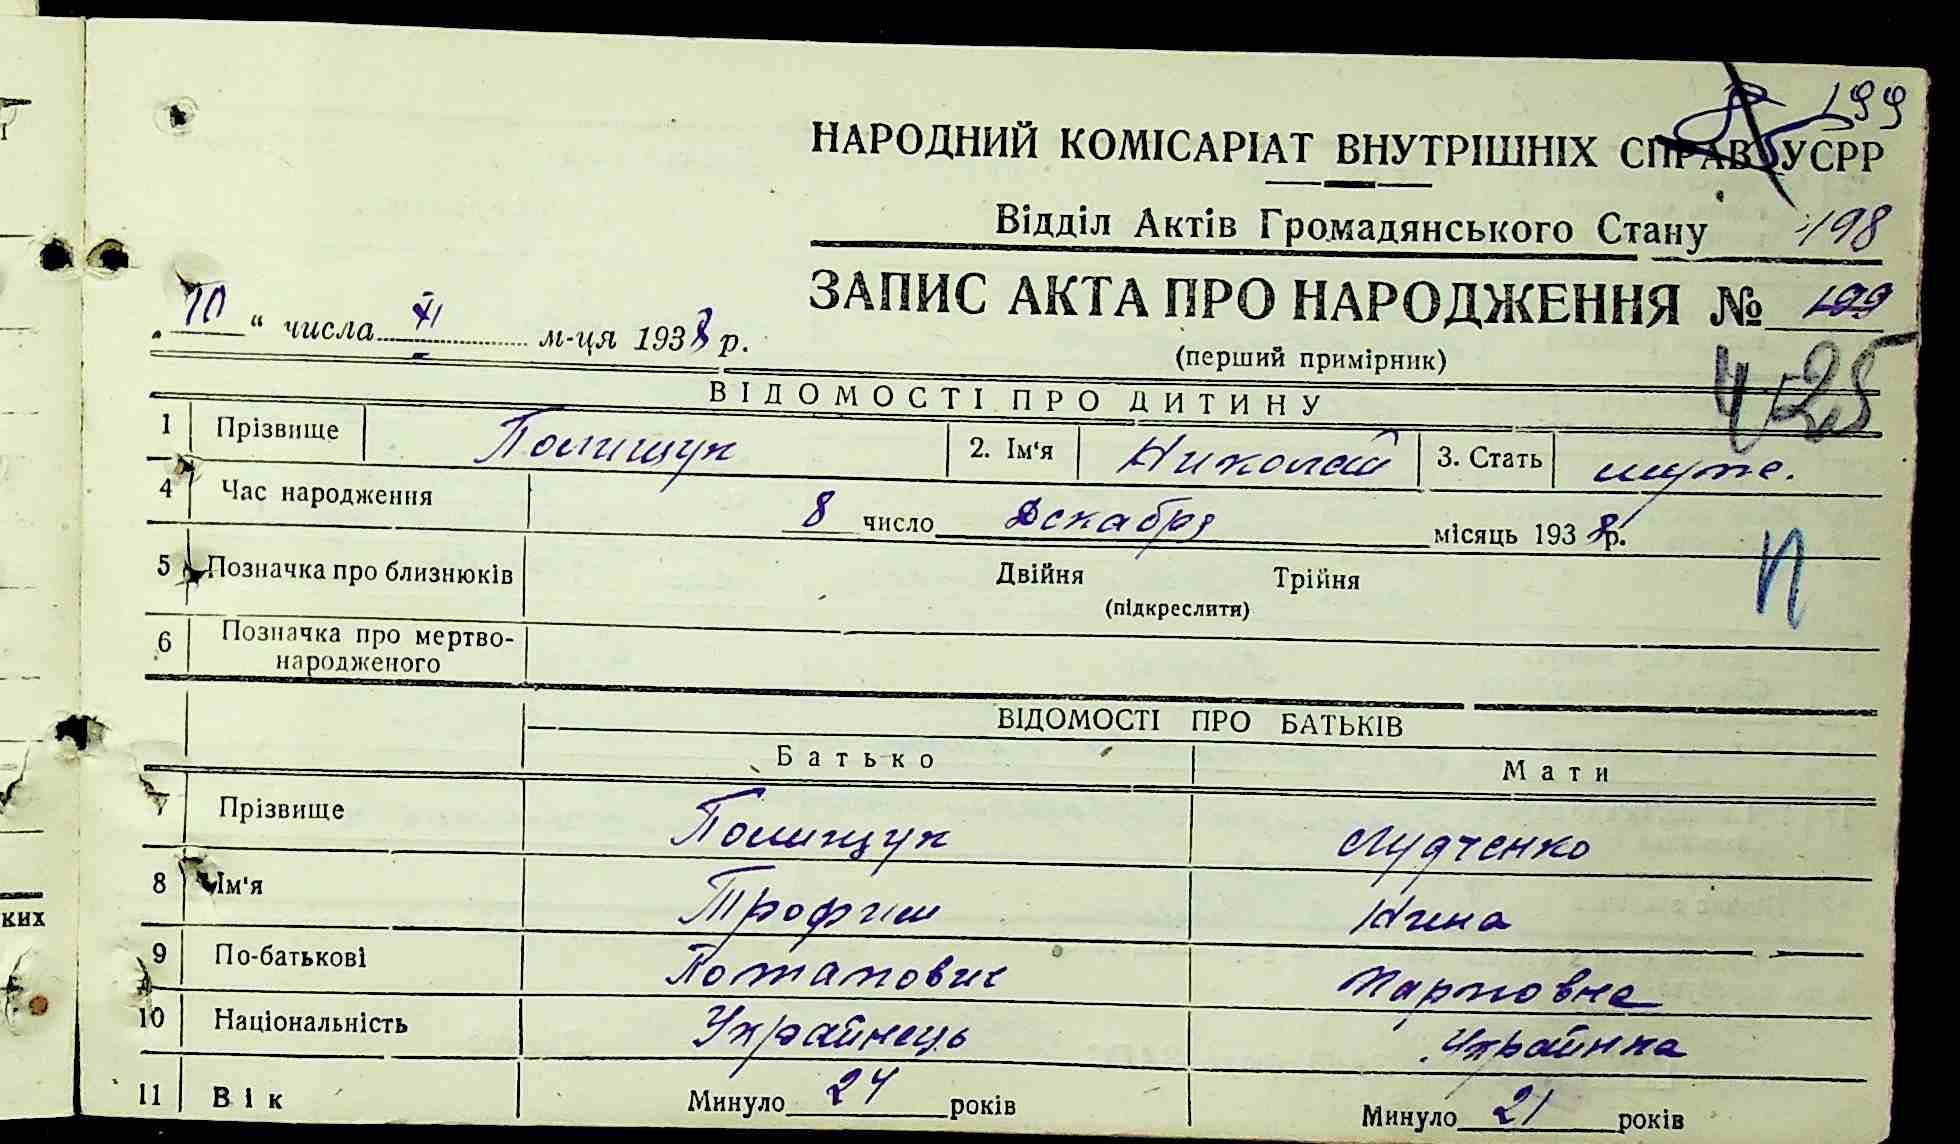 199
НАРОДНИЙ КОМІСАРІАТ ВНУТРІШНІХ СПРАВ УСРР
Відділ Актів Громадянського Стану 198
ЗАПИС АКТА ПРО НАРОДЖЕННЯ № 199
„ 10 “ числа XII м-ця 1938 р.
(перший примірник)
4-25
ВІДОМОСТІ ПРО ДИТИНУ
1 Прізвище Полищук 2. Ім'я Николай 3. Стать муже.
4 Час народження 8 число Декабря місяць 1938 р.
П
5 Позначка про близнюків Двійня Трійня
(підкреслити)
6 Позначка про мертво-
народженого
ВІДОМОСТІ ПРО БАТЬКІВ
Батько Мати
7 Прізвище Полищук Лудченко
8 Ім'я Трофим Нина
9 По-батькові Потапович Карповна
10 Національність Украйнець Украйнка
11 Вік Минуло 24 років Минуло 21 років
ких